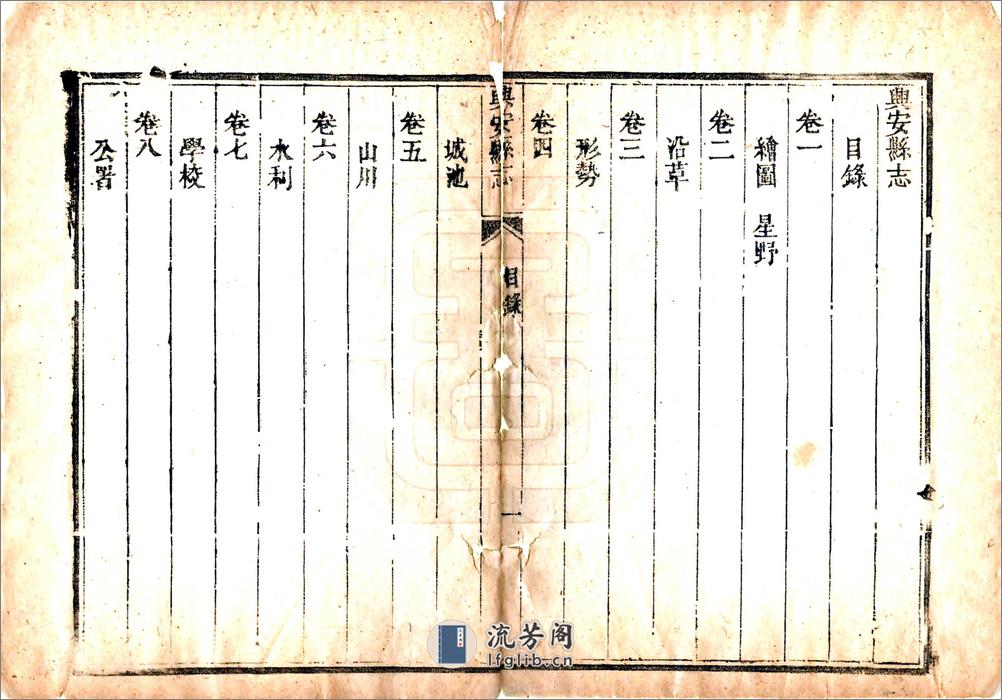 興安縣志
目錄
卷一
繪圖　星野
卷二
沿革
卷三
形勢
卷四
興安縣志　目錄　一
城池
卷五
山川
卷六
水利
卷七
學校
卷八
公署
流芳阁
lfglib.cn